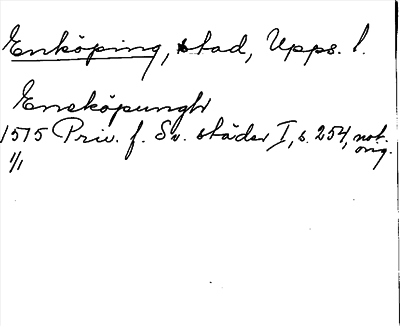 Enköping, stad, Upps. l.
Eneköpungh
1515 Priv. f. Sv. städer I, s. 254, not.
orig.
1/1